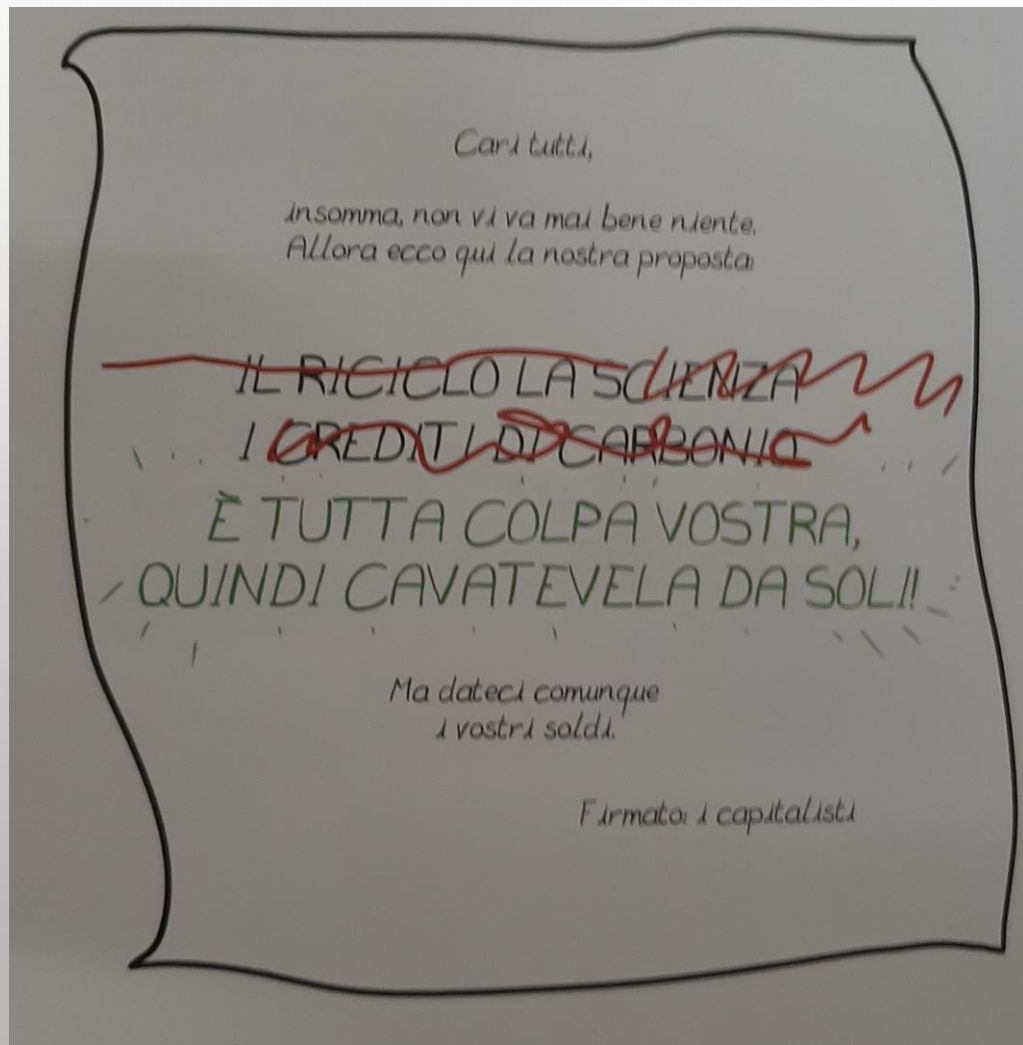 Cari tutti,
insomma, non vi va mai bene niente.
Allora ecco qui la nostra proposta:
IL RICICLO LA SCIENZA
I CREDITI DI CARBONIO
È TUTTA COLPA VOSTRA,
QUINDI CAVATEVELA DA SOLI!!
Ma dateci comunque
i vostri soldi.
Firmato: i capitalisti